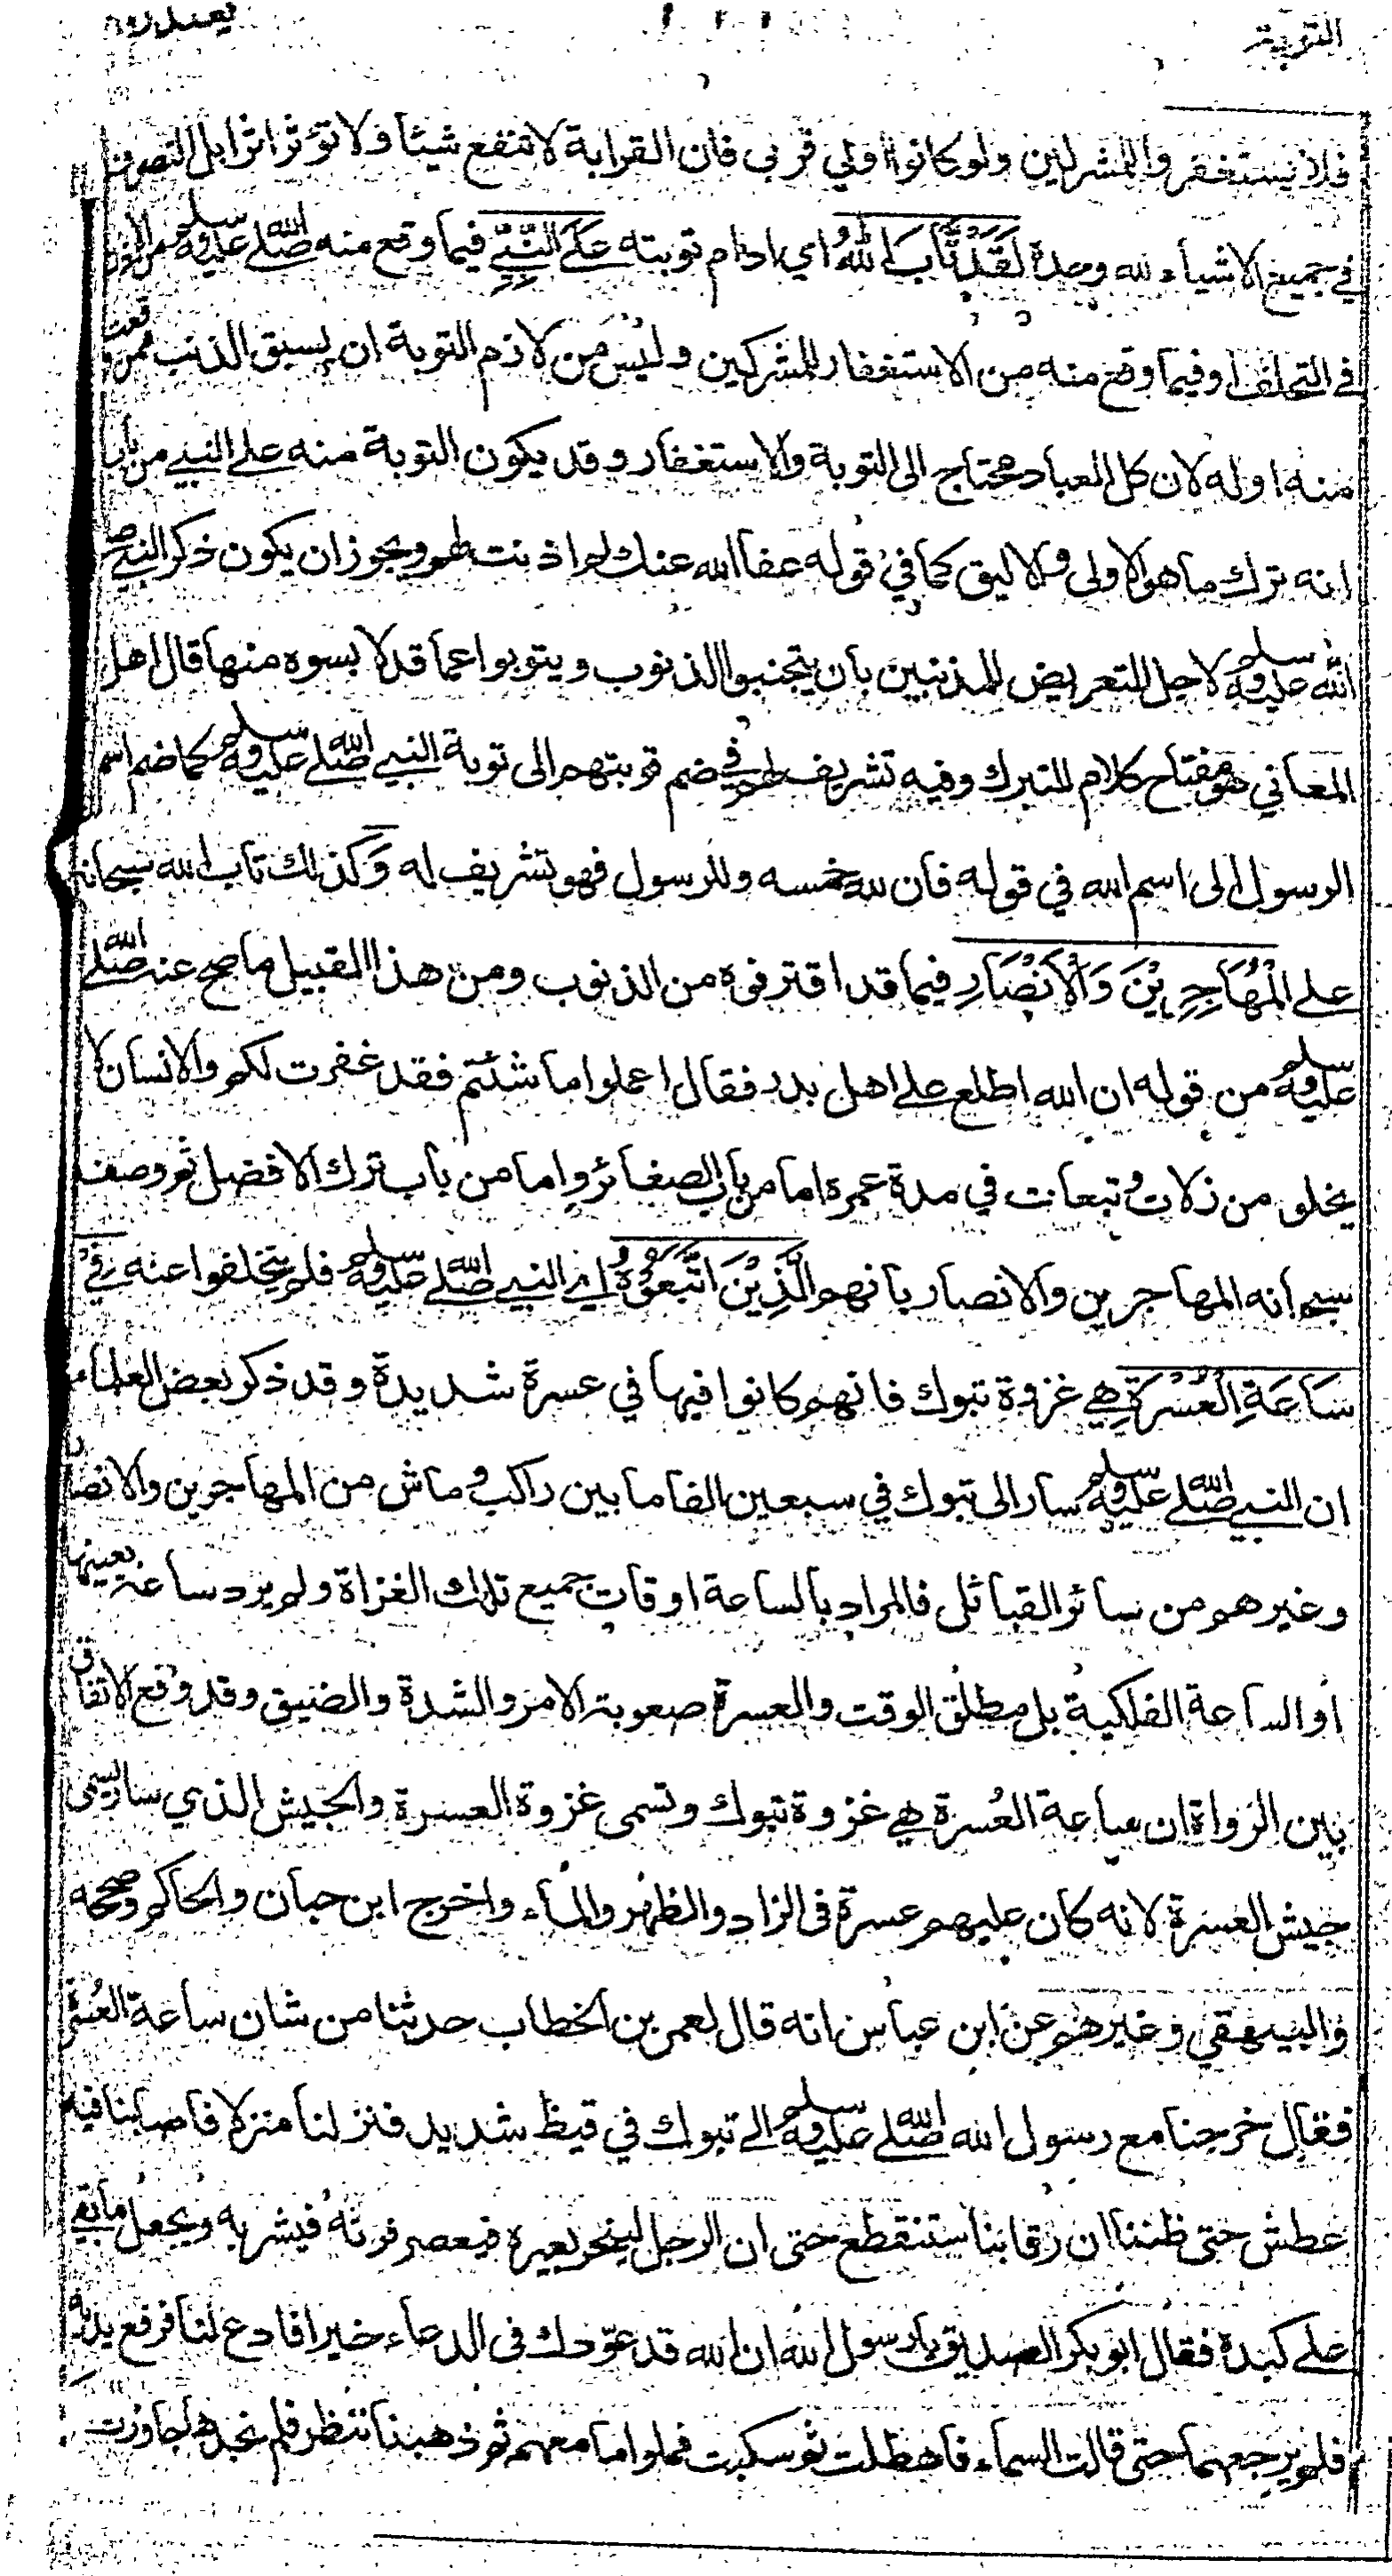 التوبة يعتذرون
فلا تستغفروا للمشركين ولو كانوا اولي قربى فان القرابة لا تنفع شيئا ولا تؤثر اثرا بل التصرف
في جميع الاشياء لله وحدة لَقَدْ تَّابَ اللهُ اي ادام توبته عَلَى النَّبِيِّ فيما وقع منه صلى الله عليه وسلم من الاذن
في التخلف او فيما وقع منه من الاستغفار للمشركين وليس من لازم التوبة ان يسبق الذنب ممن وقعت
منه او له لان كل العباد محتاج الى التوبة والاستغفار وقد يكون التوبة منه على النبي من باب
انه ترك ما هو الاولى والاليق كما في قوله عفا الله عنك لم اذنت لهم ويجوز ان يكون ذكر النبي صلى
الله عليه وسلم لاجل التعريض للمذنبين بان يتجنبوا الذنوب ويتوبوا عما قد لابسوه منها قال اهل
المعاني هو مفتاح كلام للتبرك وفيه تشريف لهم في ضم توبتهم الى توبة النبي صلى الله عليه وسلم كما ضم اسم
الرسول الى اسم الله في قوله فان لله خمسه وللرسول فهو تشريف له وَ كذلك تاب الله سبحانه
على الْمُهَاجِرِيْنَ وَالْاَنْصَارِ فيما قد اقترفوه من الذنوب ومن هذا القبيل ما صح عنه صلى الله
عليه وسلم من قوله ان الله اطلع على اهل بدر فقال اعملوا ما شئتم فقد غفرت لكم والانسان لا
يخلو من زلات وتبعات في مدة عمره اما من باب الصغائر واما من باب ترك الافضل ثم وصف
سبحانه المهاجرين والانصار بانهم الَّذِيْنَ اتَّبَعُوْهُ اي النبي صلى الله عليه وسلم فلم يتخلفوا عنه فِيْ
سَاعَةِ الْعُسْرَةِ هي غزوة تبوك فانهم كانوا فيها في عسرة شديدة وقد ذكر بعض العلماء
ان النبي صلى الله عليه وسلم سار الى تبوك في سبعين الفا ما بين راكب وماش من المهاجرين والانصار
وغيرهم من سائر القبائل فالمراد بالساعة اوقات جميع تلك الغزاة ولم يرد ساعة بعينها
او الساعة الفلكية بل مطلق الوقت والعسرة صعوبة الامر والشدة والضيق وقد وقع الاتفاق
بين الرواة ان ساعة العُسرة هي غزوة تبوك وتسمى غزوة العسرة والجيش الذي سار يسمى
جيش العسرة لانه كان عليهم عسرة في الزاد والظهر والماء واخرج ابن حبان والحاكم وصححه
والبيهقي وغيرهم عن ابن عباس انه قال لعمر بن الخطاب حدثنا من شان ساعة العُسرة
فقال خرجنا مع رسول الله صلى الله عليه وسلم الى تبوك في قيظ شديد فنزلنا منزلا فاصابنا فيه
عطش حتى ظننا ان رقابنا ستنقطع حتى ان الرجل لينحر بعيره فيعصر فرثه فيشربه ويجعل ما بقي
على كبدة فقال ابو بكر الصديق يا رسول الله ان الله قد عوّدك في الدعاء خيرا فادع لنا فرفع يديه
فلم يرجعهما حتى قالت السماء فاهطلت ثم سكبت فملوا ما معهم ثم ذهبنا ننظر فلم نجدها جاوزت